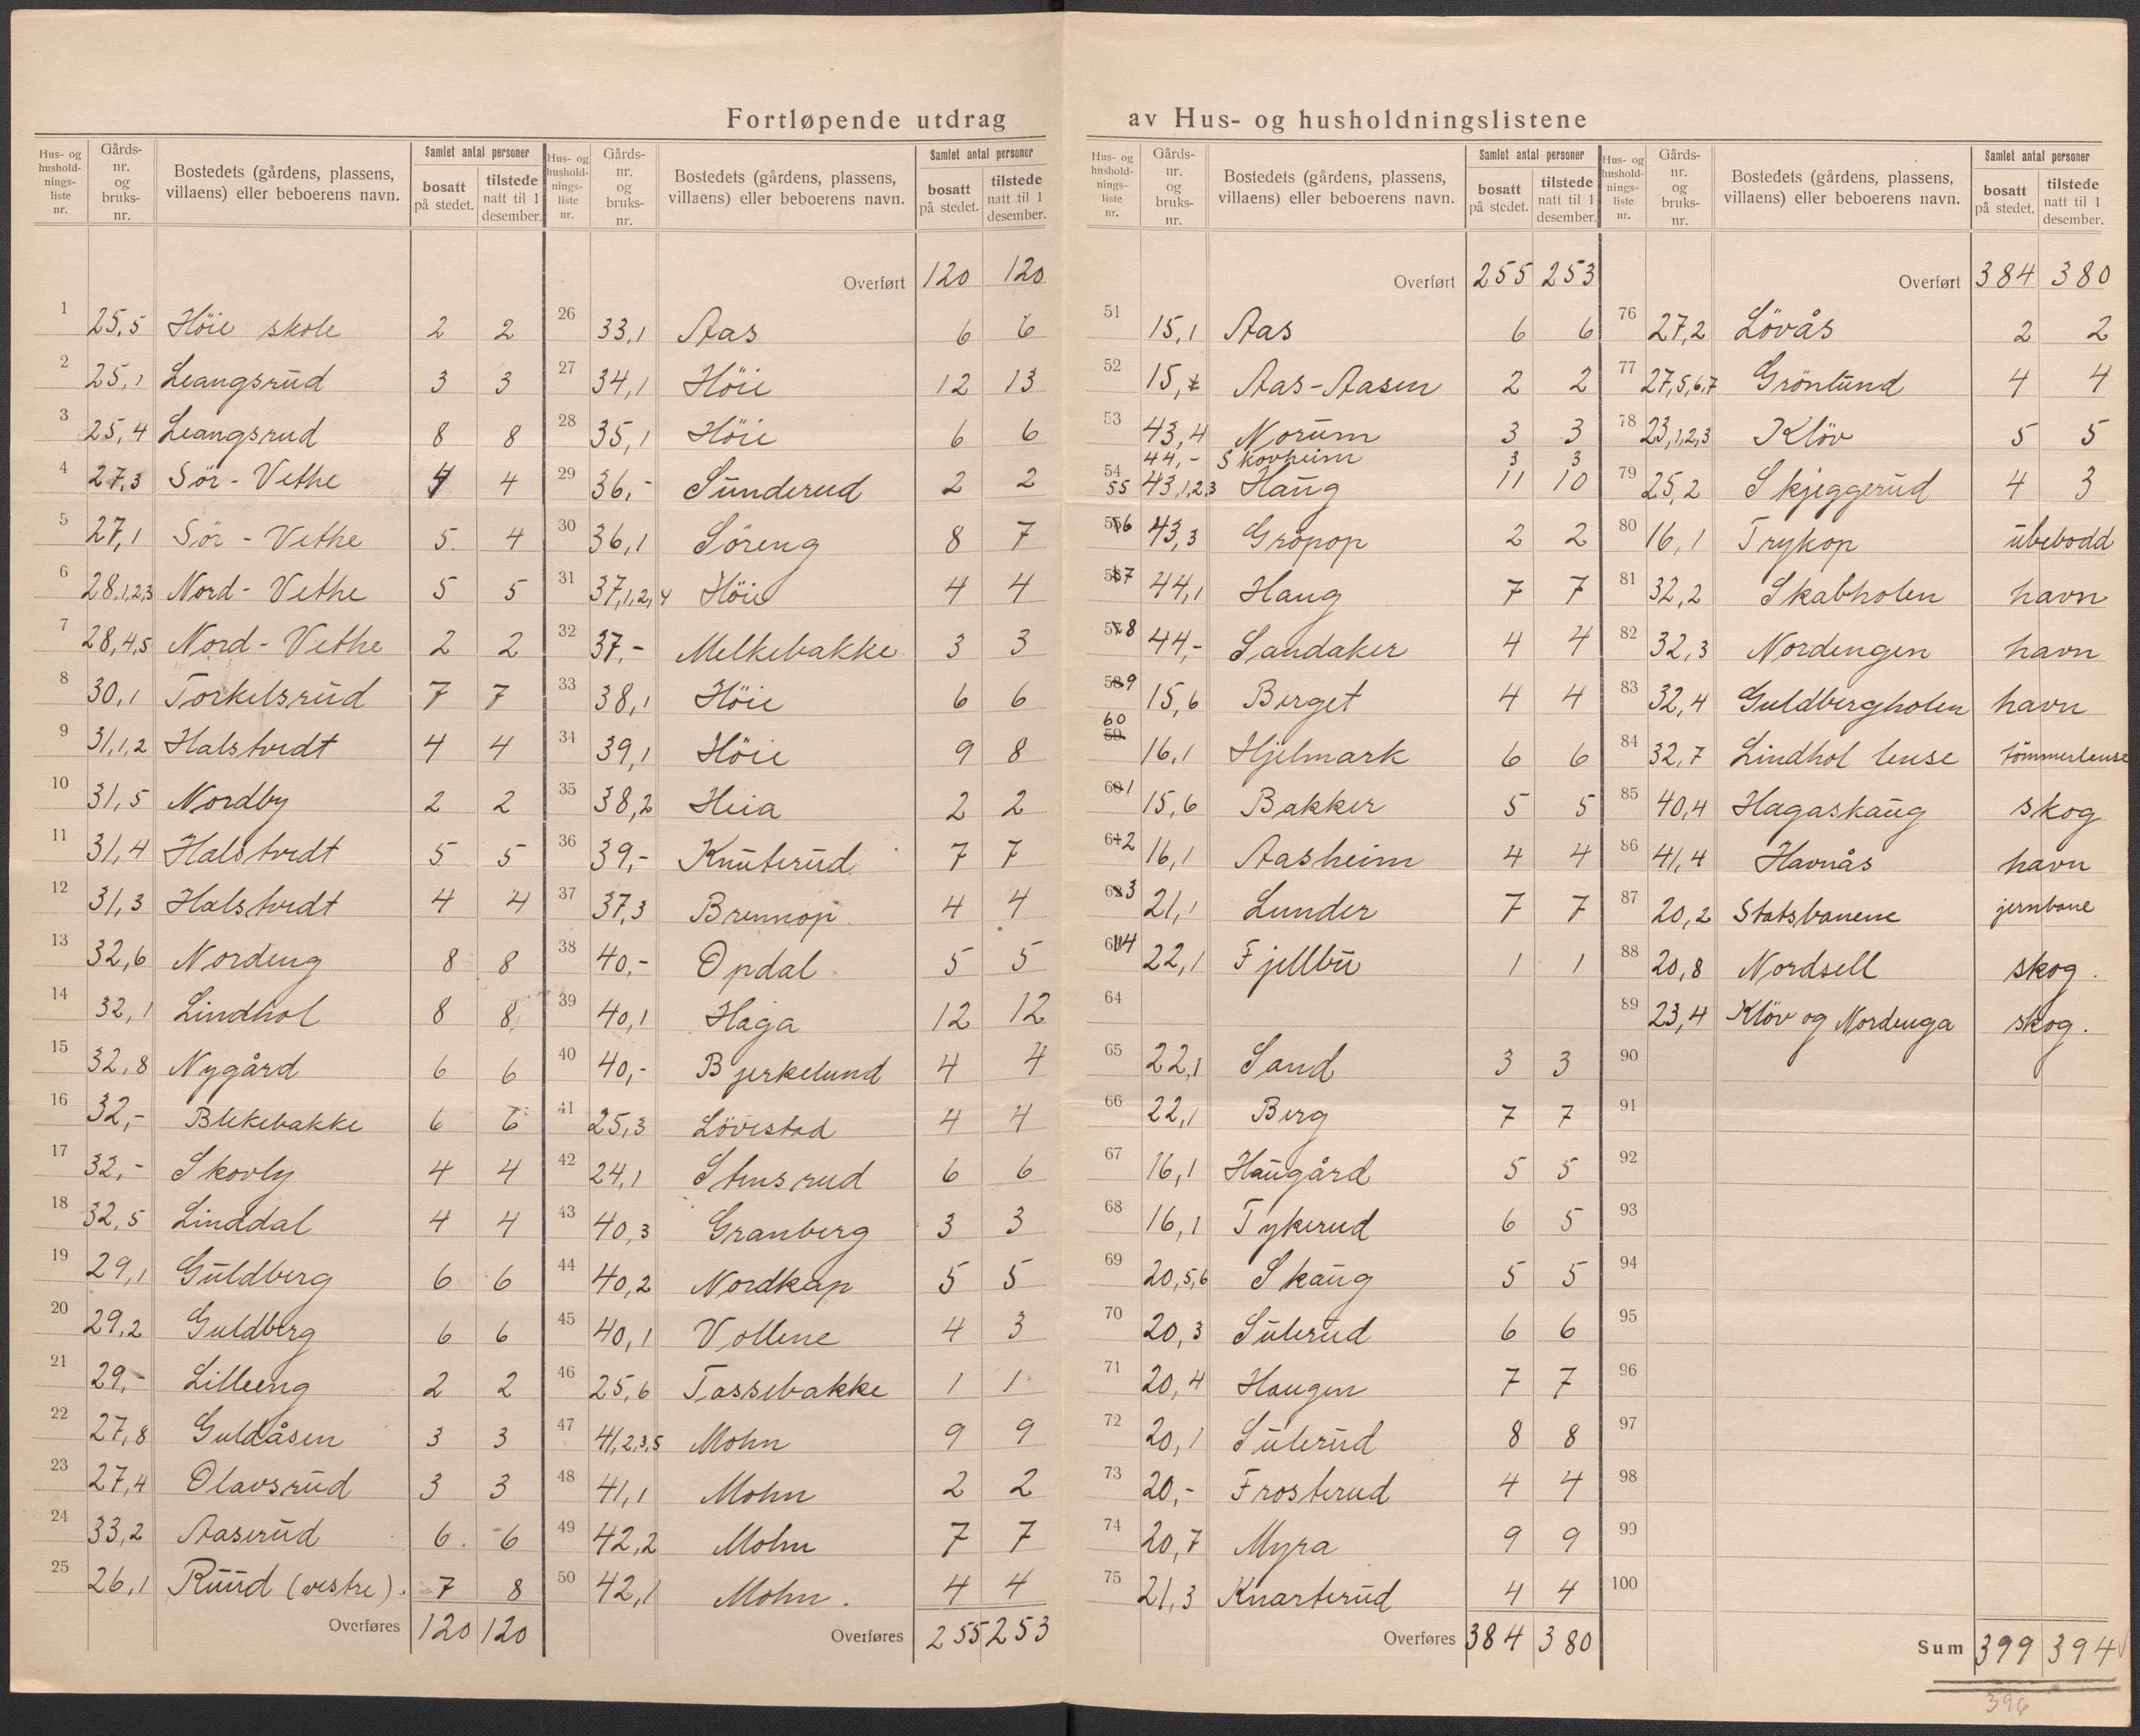 Fortløpende utdrag av Hus- og husholdningslistene
Hus- og husholdnings- liste nr. | Gårds- nr. og bruks- nr. | Bostedets (gårdens, plassens, villaens) eller beboerens navn. | Samlet antal personer | bosatt på stedet. | tilstede natt til 1 desember.
1 25,5 Höie skole 2 2
2 25,1 Leangsrud 3 3
3 25,4 Leangsrud 8 8
4 27,3 Sör-Vethe 4 4
5 27,1 Sör-Vethe 5 4
6 28,1,2,3 Nord-Vethe 5 5
7 28,4,5 Nord-Vethe 2 2
8 30,1 Torkelsrud 7 7
9 31,1,2 Halstvedt 4 4
10 31,5 Nordby 2 2
11 31,4 Halstvedt 5 5
12 31,3 Halstvedt 4 4
13 32,6 Nordeng 8 8
14 32,1 Lindhol 8 8
15 32,8 Nygård 6 6
16 32,- Blekebakke 6 6
17 32,- Skovly 4 4
18 32,5 Linddal 4 4
19 29,1 Guldberg 6 6
20 29,2 Guldberg 6 6
21 29,- Lilleeng 2 2
22 27,8 Guldåsen 3 3
23 27,4 Olavsrud 3 3
24 33,2 Aaserud 6 6
25 26,1 Ruud (vestre). 7 8
Overføres 120 120
Hus- og husholdnings- liste nr. | Gårds- nr. og bruks- nr. | Bostedets (gårdens, plassens, villaens) eller beboerens navn. | Samlet antal personer | bosatt på stedet. | tilstede natt til 1 desember.
Overført 120 120
26 33,1 Aas 6 6
27 34,1 Höie 12 13
28 35,1 Höie 6 6
29 36,- Sunderud 2 2
30 36,1 Söreng 8 7
31 37,1,2,4 Höie 4 4
32 37,- Melkebakke 3 3
33 38,1 Höie 6 6
34 39,1 Höie 9 8
35 38,2 Heia 2 2
36 39,- Knuterud 7 7
37 37,3 Brennop 4 4
38 40,- Opdal 5 5
39 40,1 Haga 12 12
40 40,- Bjerkelund 4 4
41 25,3 Lövestad 4 4
42 24,1 Stensrud 6 6
43 40,3 Granberg 3 3
44 40,2 Nordkap 5 5
45 40,1 Vollene 4 3
46 25,6 Tassebakke 1 1
47 41,2,3,5 Mohn 9 9
48 41,1 Mohn 2 2
49 42,2 Mohn 7 7
50 42,1 Mohn. 4 4
Overføres 255 253
Hus- og husholdnings- liste nr. | Gårds- nr. og bruks- nr. | Bostedets (gårdens, plassens, villaens) eller beboerens navn. | Samlet antal personer | bosatt på stedet. | tilstede natt til 1 desember.
Overført 255 253
51 15,1 Aas 6 6
52 15, Aas-Aasen 2 2
53 43,4 Norum 3 3
54 44,- Skovheim 3 3
55 43,1,2,3 Haug 11 10
56 43,3 Gropop 2 2
57 44,1 Haug 7 7
58 44,- Sandaker 4 4
59 15,6 Berget 4 4
60 16,1 Hjelmark 6 6
61 15,6 Bakker 5 5
62 16,1 Aasheim 4 4
63 21,1 Lunder 7 7
64 22,1 Fjellbu 1 1
64
65 22,1 Sand 3 3
66 22,1 Berg 7 7
67 16,1 Haugård 5 5
68 16,1 Tykerud 6 5
69 20,5,6 Skaug 5 5
70 20,3 Sulerud 6 6
71 20,4 Haugen 7 7
72 20,1 Sulerud 8 8
73 20,- Frosterud 4 4
74 20,7 Myra 9 9
75 21,3 Knarterud 4 4
Overføres 384 380
Hus- og husholdnings- liste nr. | Gårds- nr. og bruks- nr. | Bostedets (gårdens, plassens, villaens) eller beboerens navn. | Samlet antal personer | bosatt på stedet. | tilstede natt til 1 desember.
Overført 384 380
76 27,2 Lövås 2 2
77 27,5,6,7 Grönlund 4 4
78 23,1,2,3 Klöv 5 5
79 25,2 Skjeggerud 4 3
80 16,1 Trykop ubebodd
81 32,2 Skabholen havn
82 32,3 Nordengen havn
83 32,4 Guldbergholen havn
84 32,7 Lindhol lense tömmerlense
85 40,4 Hagaskaug skog
86 41,4 Havnås havn
87 20,2 Statsbanene jernbane
88 20,8 Nordsell skog.
89 23,4 Klöv og Nordenga skog.
90
91
92
93
94
95
96
97
98
99
100
Sum 399 394
396